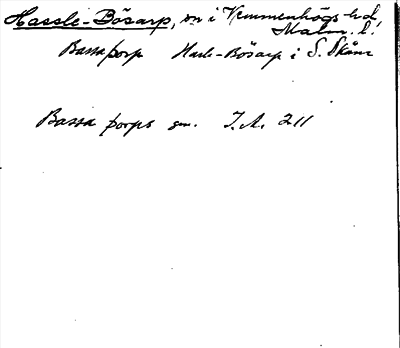 Hassle-Bösarp, sn i Vemmenhögs hd,
Malm. l.
Bassaþorp Hasle-Bösarp i S. Skåne
Bassa þorps gen. J.A. 211